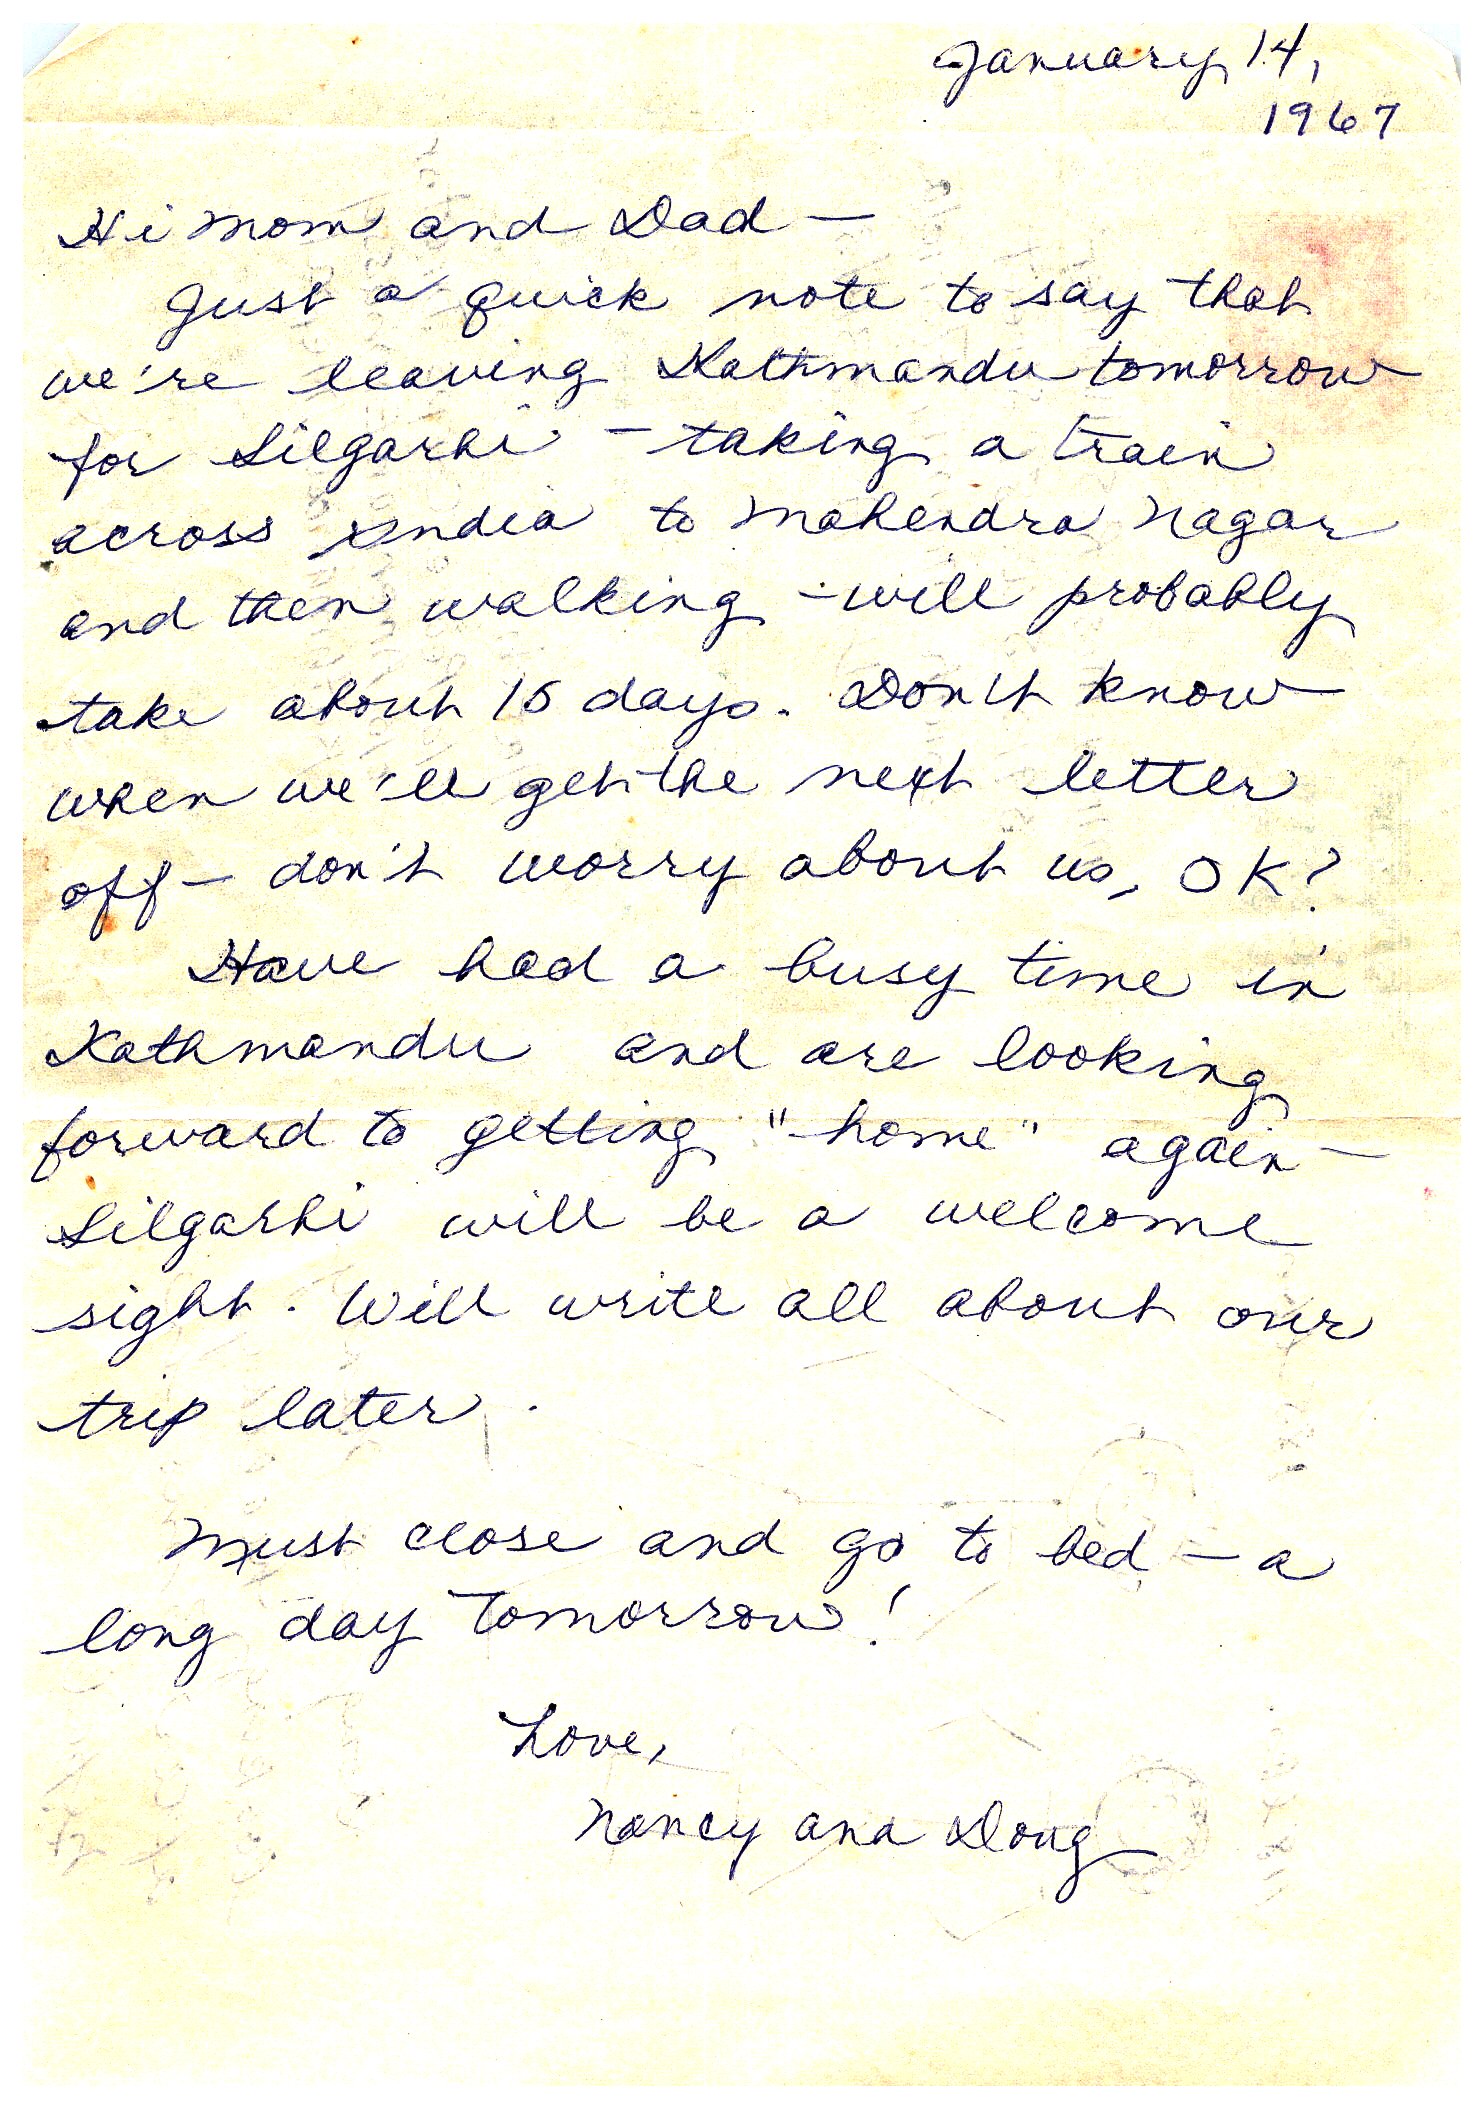 January 14,
1967
Hi Mom and Dad —
Just a quick note to say that
we're leaving Kathmandu tomorrow
for Silgarhi — taking a train
across India to Mahendra Nagar
and then walking — will probably
take about 15 days. Don't know
when we'll get the next letter
off — don't worry about us, OK?
Have had a busy time in
Kathmandu and are looking
forward to getting "home" again —
Silgarhi will be a welcome
sight. Will write all about our
trip later.
Must close and go to bed — a
long day tomorrow!
Love,
Nancy and Doug